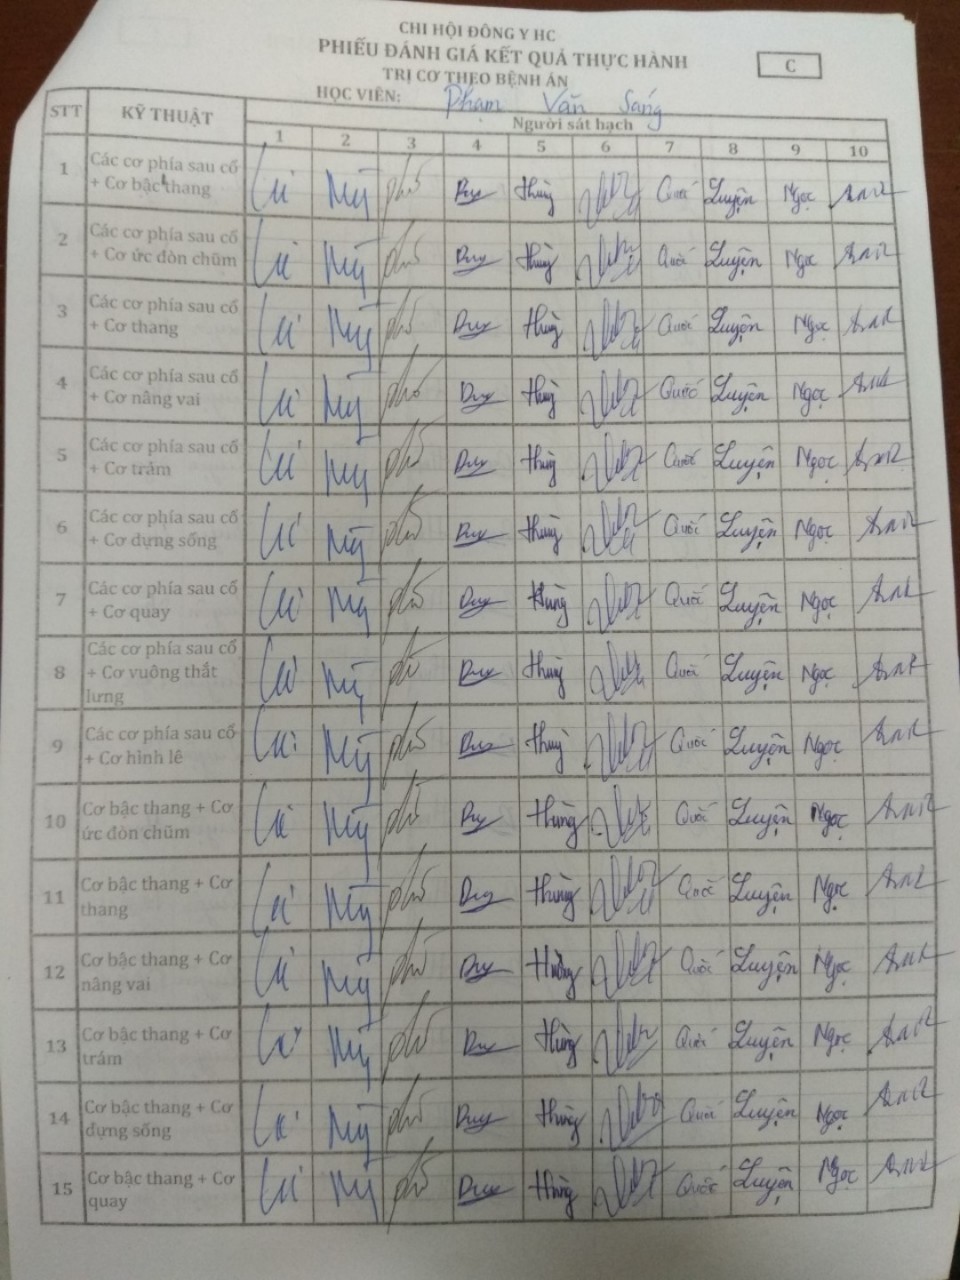 CHI HỘI ĐÔNG Y HC
PHIẾU ĐÁNH GIÁ KẾT QUẢ THỰC HÀNH
C
TRỊ CƠ THEO BỆNH ÁN
HỌC VIÊN: Phạm Văn Sang
STT KỸ THUẬT Người sát hạch
1 2 3 4 5 6 7 8 9 10
1 Các cơ phía sau cổ
+ Cơ bậc thang Mỹ phú Duy Hùng Quốc Luyện Ngọc Anh
2 Các cơ phía sau cổ
+ Cơ ức đòn chũm Mỹ phú Duy Hùng Quốc Luyện Ngọc Anh
3 Các cơ phía sau cổ
+ Cơ thang Mỹ phú Duy Hùng Quốc Luyện Ngọc Anh
4 Các cơ phía sau cổ
+ Cơ nâng vai Mỹ phú Duy Hùng Quốc Luyện Ngọc Anh
5 Các cơ phía sau cổ
+ Cơ trám Mỹ phú Duy Hùng Quốc Luyện Ngọc Anh
6 Các cơ phía sau cổ
+ Cơ dựng sống Mỹ phú Duy Hùng Quốc Luyện Ngọc Anh
7 Các cơ phía sau cổ
+ Cơ quay Mỹ phú Duy Hùng Quốc Luyện Ngọc Anh
8 Các cơ phía sau cổ
+ Cơ vuông thắt Mỹ phú Duy Hùng Quốc Luyện Ngọc Anh
lưng
9 Các cơ phía sau cổ
+ Cơ hình lê Mỹ phú Duy Hùng Quốc Luyện Ngọc Anh
10 Cơ bậc thang + Cơ
ức đòn chũm Mỹ phú Duy Hùng Quốc Luyện Ngọc Anh
11 Cơ bậc thang + Cơ
thang Mỹ phú Duy Hùng Quốc Luyện Ngọc Anh
12 Cơ bậc thang + Cơ
nâng vai Mỹ phú Duy Hùng Quốc Luyện Ngọc Anh
13 Cơ bậc thang + Cơ
trám Mỹ phú Duy Hùng Quốc Luyện Ngọc Anh
14 Cơ bậc thang + Cơ
dựng sống Mỹ phú Duy Hùng Quốc Luyện Ngọc Anh
15 Cơ bậc thang + Cơ
quay Mỹ phú Duy Hùng Quốc Luyện Ngọc Anh